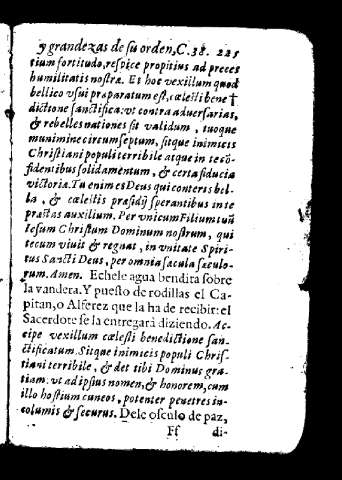 y grandezas de su orden, C. 38. 225
tium fortitudo, respice propitius ad preces
humilitatis nostræ. Et hoc vexillum quod
bellico vsui præparatum est, cælesti bene ✝
dictione sanctifica: vt contra aduersarias,
& rebelles nationes sit validum, tuoque
munimine circumseptum, sitque inimicis
Christiani populi terribile atque in te cõ-
fidentibus solidamentum, & certa fiducia
victoriæ. Tu enim es Deus qui conteris bel-
la, & cælestis præsidij sperantibus in te
præstas auxilium. Per vnicum Filium tuũ
Iesum Christum Dominum nostrum, qui
tecum viuit & regnat, in vnitate Spiri-
tus Sancti Deus, per omnia sæcula sæculo-
rum. Amen. Echele agua bendita sobre
la vandera. Y puesto de rodillas el Ca-
pitan, o Alferez que la ha de recibir: el
Sacerdote se la entregarà diziendo. Ac-
cipe vexillum cælesti benedictione san-
ctificatum. Sitque inimicis populi Chris-
tiani terribile, & det tibi Dominus gra-
tiam: vt ad ipsius nomen, & honorem, cum
illo hostium cuneos, potenter penetres in-
columis & securus. Dele osculo de paz,
Ff di-